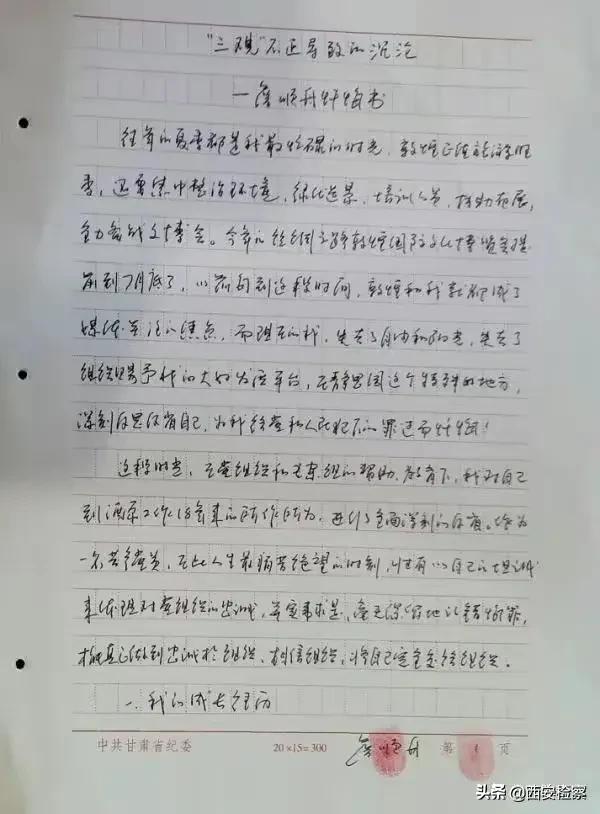 "三观"不正导致的沉沦
—詹顺舟忏悔书
往年的夏季都是我最忙碌的时光,敦煌正值旅游旺
季,还要集中整治环境,绿化造景,培训人员,
全力备战文博会。今年的丝绸之路敦煌国际文化博览会提
前到7月底了,以前每到这段时间,敦煌和我就都成了
媒体关注的焦点,而现在的我,失去了自由和阳光,失去了
组织赐予我的大好发展平台,在这个特殊的地方,
深刻反思反省自己,为我给党和人民犯下的罪过而忏悔!
这段时光,在党组织和专案组的帮助、教育下,我对自己
到酒泉工作18年来的所作所为,进行了全面深刻的反省。作为
一名共产党员,在此人生最痛苦绝望的时刻,只有以自己的坦诚
来体现对党组织的忠诚,实事求是,毫无保留地认错悔罪,
真正做到忠诚于组织、相信组织,将自己完全交给组织。
一、我的成长经历
中共甘肃省纪委 20×15=300 詹顺舟 第 1 页
头条 @西安检察